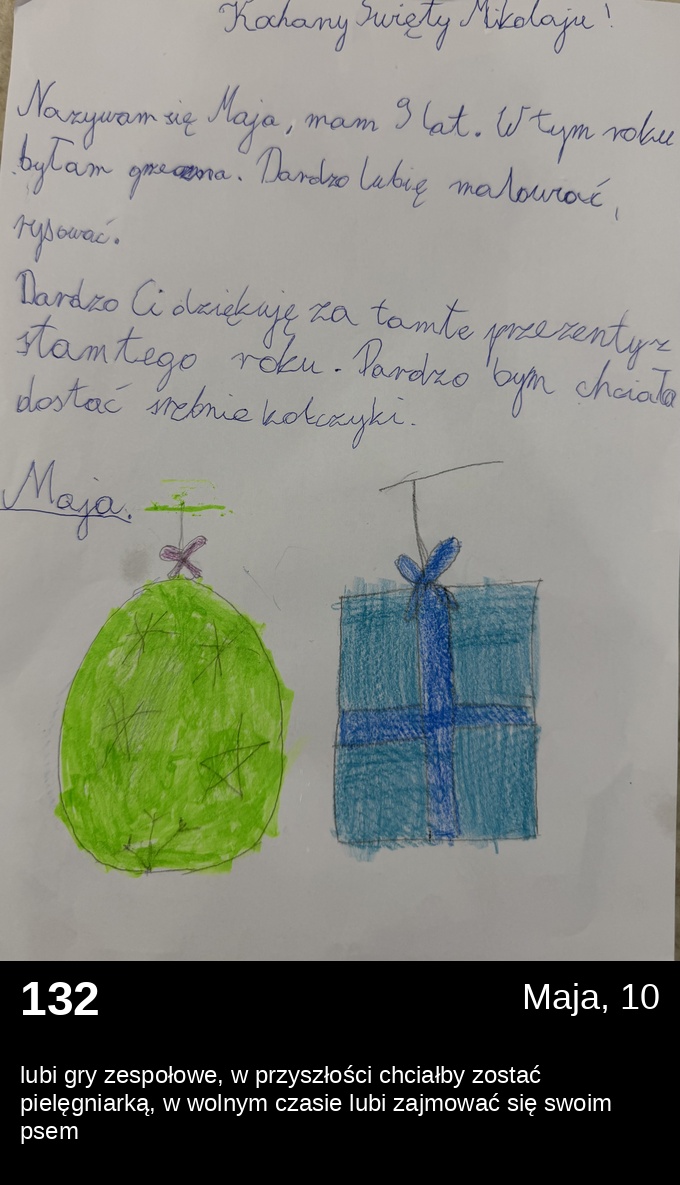 Kochany Święty Mikołaju!
Nazywam się Maja, mam 9 lat. W tym roku
byłam grzeczna. Bardzo lubię malować,
rysować.
Bardzo Ci dziękuję za tamte przezenty z
stamtego roku. Bardzo bym chciała
dostać srebnie kolczyki.
Maja.
132
Maja, 10
lubi gry zespołowe, w przyszłości chciałby zostać
pielęgniarką, w wolnym czasie lubi zajmować się swoim
psem